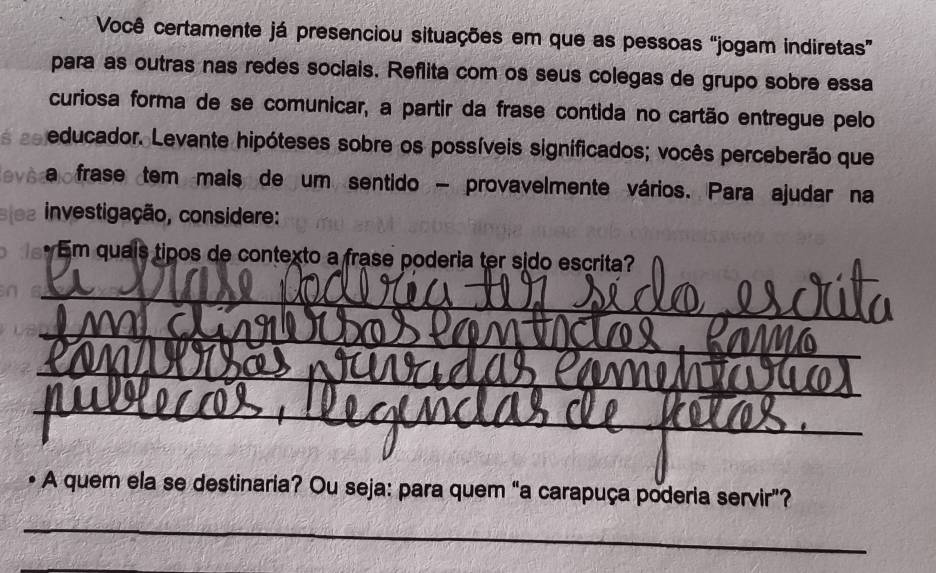 Você certamente já presenciou situações em que as pessoas “jogam indiretas”
para as outras nas redes sociais. Reflita com os seus colegas de grupo sobre essa
curiosa forma de se comunicar, a partir da frase contida no cartão entregue pelo
educador. Levante hipóteses sobre os possíveis significados; vocês perceberão que
a frase tem mais de um sentido – provavelmente vários. Para ajudar na
investigação, considere:
• Em quais tipos de contexto a frase poderia ter sido escrita?
a frase poderia ter sido escrita
em diversos contextos, como
conversas privadas comentarios
publicos, legendas de fotos.
• A quem ela se destinaria? Ou seja: para quem “a carapuça poderia servir”?